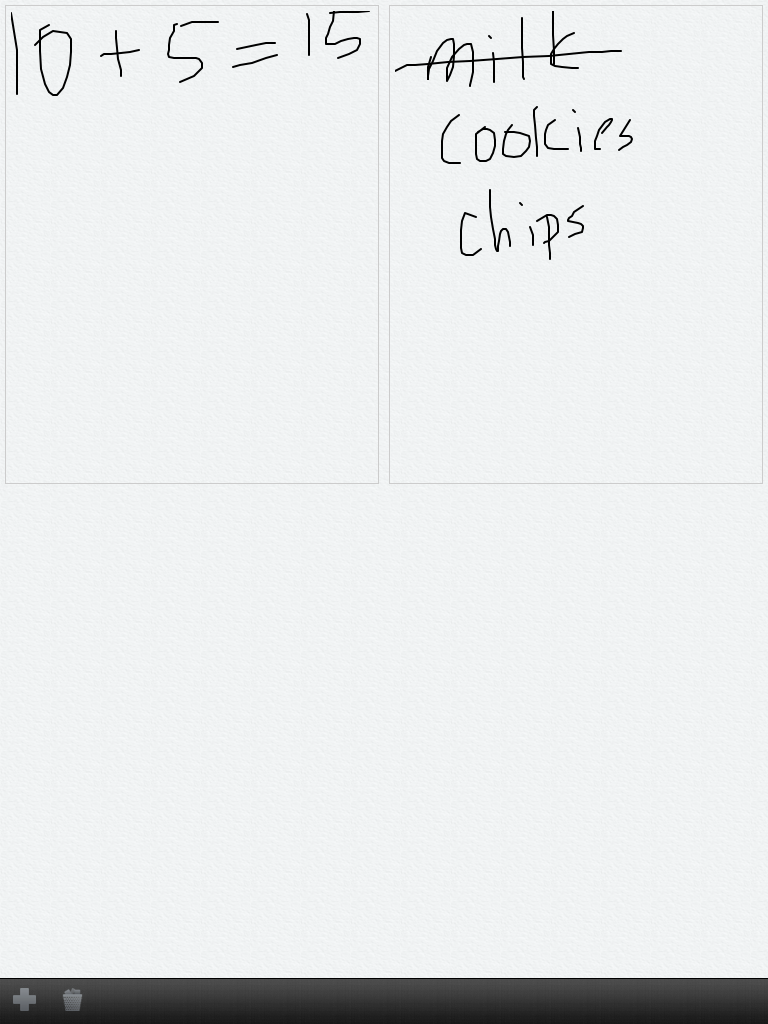 10 + 5 = 15
milk
cookies
chips